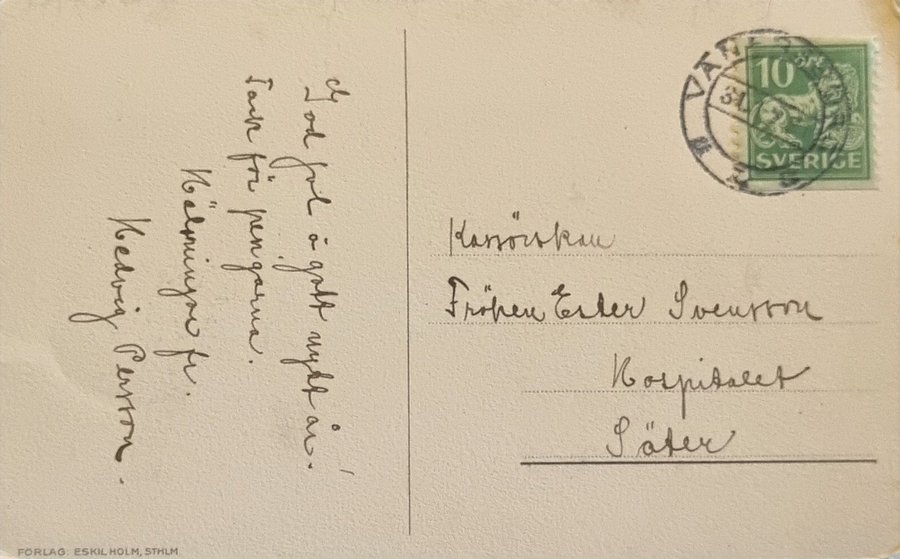 God jul å gott nytt år!
Tack för pengarna.
Hälsningar fr.
Hedvig Persson.
10 ÖRE
SVERIGE
31
Kassörskan
Fröken Ester Svensson
Hospitalet
Säter
FÖRLAG: ESKIL HOLM, STHLM